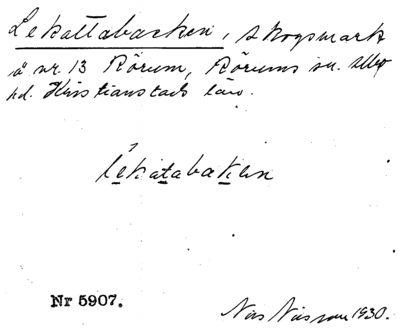 Lekattabacken, skogsmark
å nr. 13 Rörum, Rörums sn. Albo
hd. Kristianstads län.
lekatabaken
Nr 5907.
Nils Nilsson 1930.